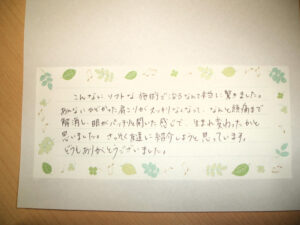 こんなにソフトな施術で治るなんて本当に驚きました。
あんなにひどかった肩こりがスッキリなくなって、なんと頭痛まで
解消し、眼がパッチリ開いた感じで、生まれ変わったかと
思いました。さっそく友達に紹介しようと思っています。
どうもありがとうございました。